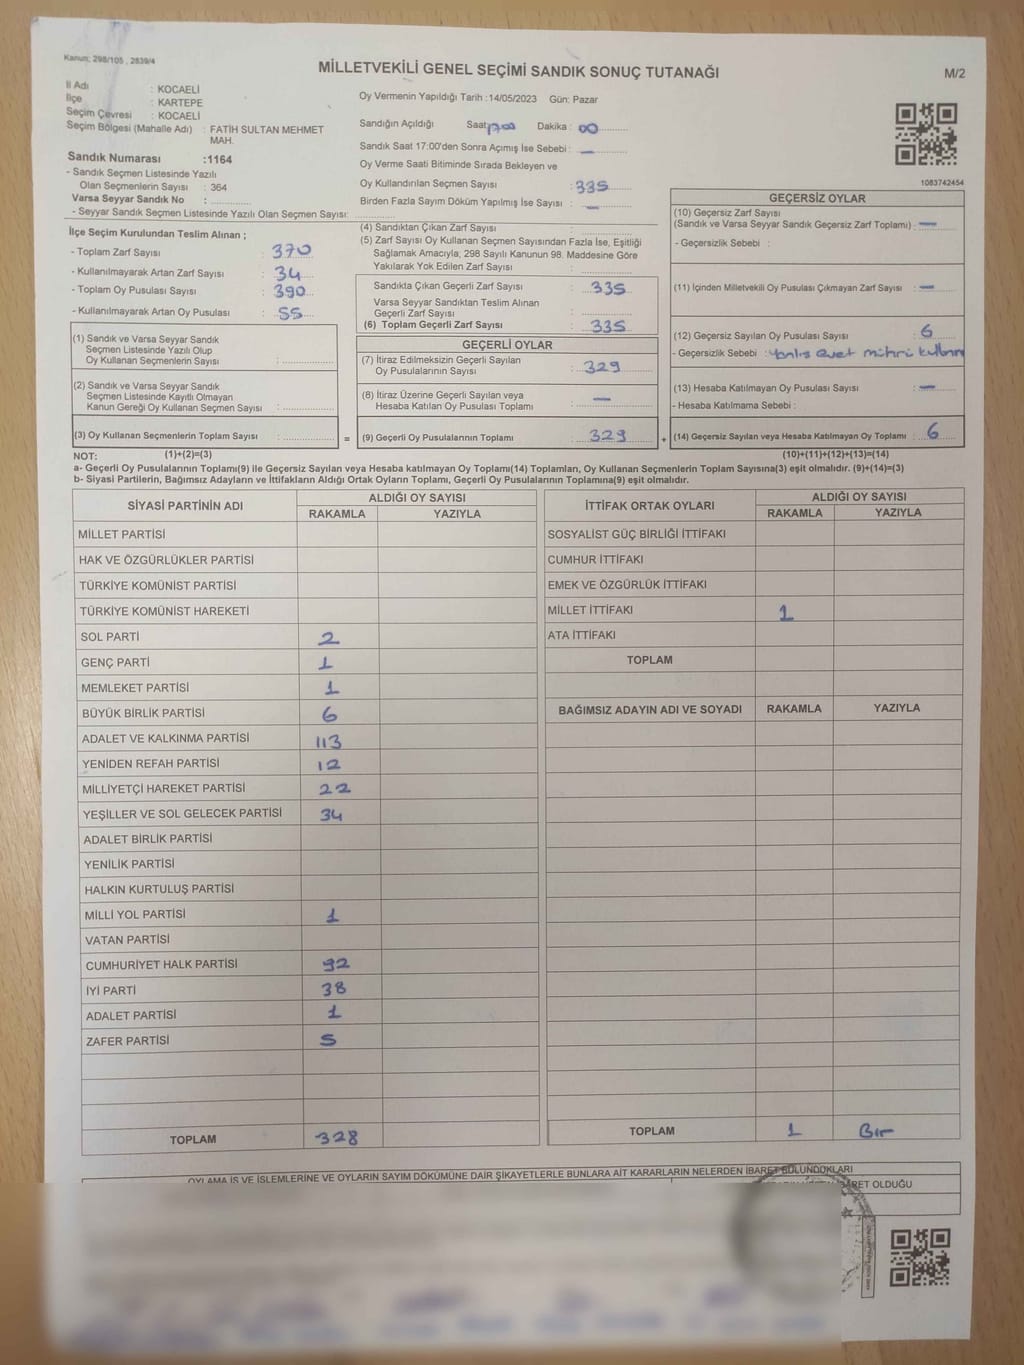 Kanun; 298/105 , 2839/4
MİLLETVEKİLİ GENEL SEÇİMİ SANDIK SONUÇ TUTANAĞI
M/2
İl Adı : KOCAELİ
İlçe : KARTEPE
Seçim Çevresi : KOCAELİ
Seçim Bölgesi (Mahalle Adı) : FATİH SULTAN MEHMET
MAH.
Sandık Numarası :1164
- Sandık Seçmen Listesinde Yazılı
Olan Seçmenlerin Sayısı : 364
Varsa Seyyar Sandık No :
- Seyyar Sandık Seçmen Listesinde Yazılı Olan Seçmen Sayısı:
Oy Vermenin Yapıldığı Tarih :14/05/2023 Gün: Pazar
Sandığın Açıldığı Saat: 17:00 Dakika : 00
Sandık Saat 17:00'den Sonra Açımış İse Sebebi : —
Oy Verme Saati Bitiminde Sırada Bekleyen ve
Oy Kullandırılan Seçmen Sayısı : 335
Birden Fazla Sayım Döküm Yapılmış İse Sayısı : —
1083742454
İlçe Seçim Kurulundan Teslim Alınan ;
- Toplam Zarf Sayısı : 370
- Kullanılmayarak Artan Zarf Sayısı : 34
- Toplam Oy Pusulası Sayısı : 390
- Kullanılmayarak Artan Oy Pusulası : 55
(1) Sandık ve Varsa Seyyar Sandık
Seçmen Listesinde Yazılı Olup
Oy Kullanan Seçmenlerin Sayısı :
(2) Sandık ve Varsa Seyyar Sandık
Seçmen Listesinde Kayıtlı Olmayan
Kanun Gereği Oy Kullanan Seçmen Sayısı :
(3) Oy Kullanan Seçmenlerin Toplam Sayısı :
(4) Sandıktan Çıkan Zarf Sayısı :
(5) Zarf Sayısı Oy Kullanan Seçmen Sayısından Fazla İse, Eşitliği
Sağlamak Amacıyla, 298 Sayılı Kanunun 98. Maddesine Göre
Yakılarak Yok Edilen Zarf Sayısı :
Sandıkta Çıkan Geçerli Zarf Sayısı : 335
Varsa Seyyar Sandıktan Teslim Alınan
Geçerli Zarf Sayısı :
(6) Toplam Geçerli Zarf Sayısı : 335
GEÇERLİ OYLAR
(7) İtiraz Edilmeksizin Geçerli Sayılan
Oy Pusulalarının Sayısı : 329
(8) İtiraz Üzerine Geçerli Sayılan veya
Hesaba Katılan Oy Pusulası Toplamı : —
= (9) Geçerli Oy Pusulalarının Toplamı : 329 +
GEÇERSİZ OYLAR
(10) Geçersiz Zarf Sayısı
(Sandık ve Varsa Seyyar Sandık Geçersiz Zarf Toplamı) : —
- Geçersizlik Sebebi :
(11) İçinden Milletvekili Oy Pusulası Çıkmayan Zarf Sayısı : —
(12) Geçersiz Sayılan Oy Pusulası Sayısı : 6
- Geçersizlik Sebebi : Yanlış evet mührü
(13) Hesaba Katılmayan Oy Pusulası Sayısı : —
- Hesaba Katılmama Sebebi :
(14) Geçersiz Sayılan veya Hesaba Katılmayan Oy Toplamı : 6
NOT: (1)+(2)=(3) (10)+(11)+(12)+(13)=(14)
a- Geçerli Oy Pusulalarının Toplamı(9) ile Geçersiz Sayılan veya Hesaba katılmayan Oy Toplamı(14) Toplamları, Oy Kullanan Seçmenlerin Toplam Sayısına(3) eşit olmalıdır. (9)+(14)=(3)
b- Siyasi Partilerin, Bağımsız Adayların ve İttifakların Aldığı Ortak Oyların Toplamı, Geçerli Oy Pusulalarının Toplamına(9) eşit olmalıdır.
SİYASİ PARTİNİN ADI ALDIĞI OY SAYISI
RAKAMLA YAZIYLA
MİLLET PARTİSİ
HAK VE ÖZGÜRLÜKLER PARTİSİ
TÜRKİYE KOMÜNİST PARTİSİ
TÜRKİYE KOMÜNİST HAREKETİ
SOL PARTİ 2
GENÇ PARTİ 1
MEMLEKET PARTİSİ 1
BÜYÜK BİRLİK PARTİSİ 6
ADALET VE KALKINMA PARTİSİ 113
YENİDEN REFAH PARTİSİ 12
MİLLİYETÇİ HAREKET PARTİSİ 22
YEŞİLLER VE SOL GELECEK PARTİSİ 34
ADALET BİRLİK PARTİSİ
YENİLİK PARTİSİ
HALKIN KURTULUŞ PARTİSİ
MİLLİ YOL PARTİSİ 1
VATAN PARTİSİ
CUMHURİYET HALK PARTİSİ 92
İYİ PARTİ 38
ADALET PARTİSİ 1
ZAFER PARTİSİ 5
TOPLAM 328
İTTİFAK ORTAK OYLARI ALDIĞI OY SAYISI
RAKAMLA YAZIYLA
SOSYALİST GÜÇ BİRLİĞİ İTTİFAKI
CUMHUR İTTİFAKI
EMEK VE ÖZGÜRLÜK İTTİFAKI
MİLLET İTTİFAKI 1
ATA İTTİFAKI
TOPLAM
BAĞIMSIZ ADAYIN ADI VE SOYADI RAKAMLA YAZIYLA
TOPLAM 1 Bir
OYLAMA İŞ VE İŞLEMLERİNE VE OYLARIN SAYIM DÖKÜMÜNE DAİR ŞİKAYETLERLE BUNLARA AİT KARARLARIN NELERDEN İBARET BULUNDUKLARI
İBARET OLDUĞU